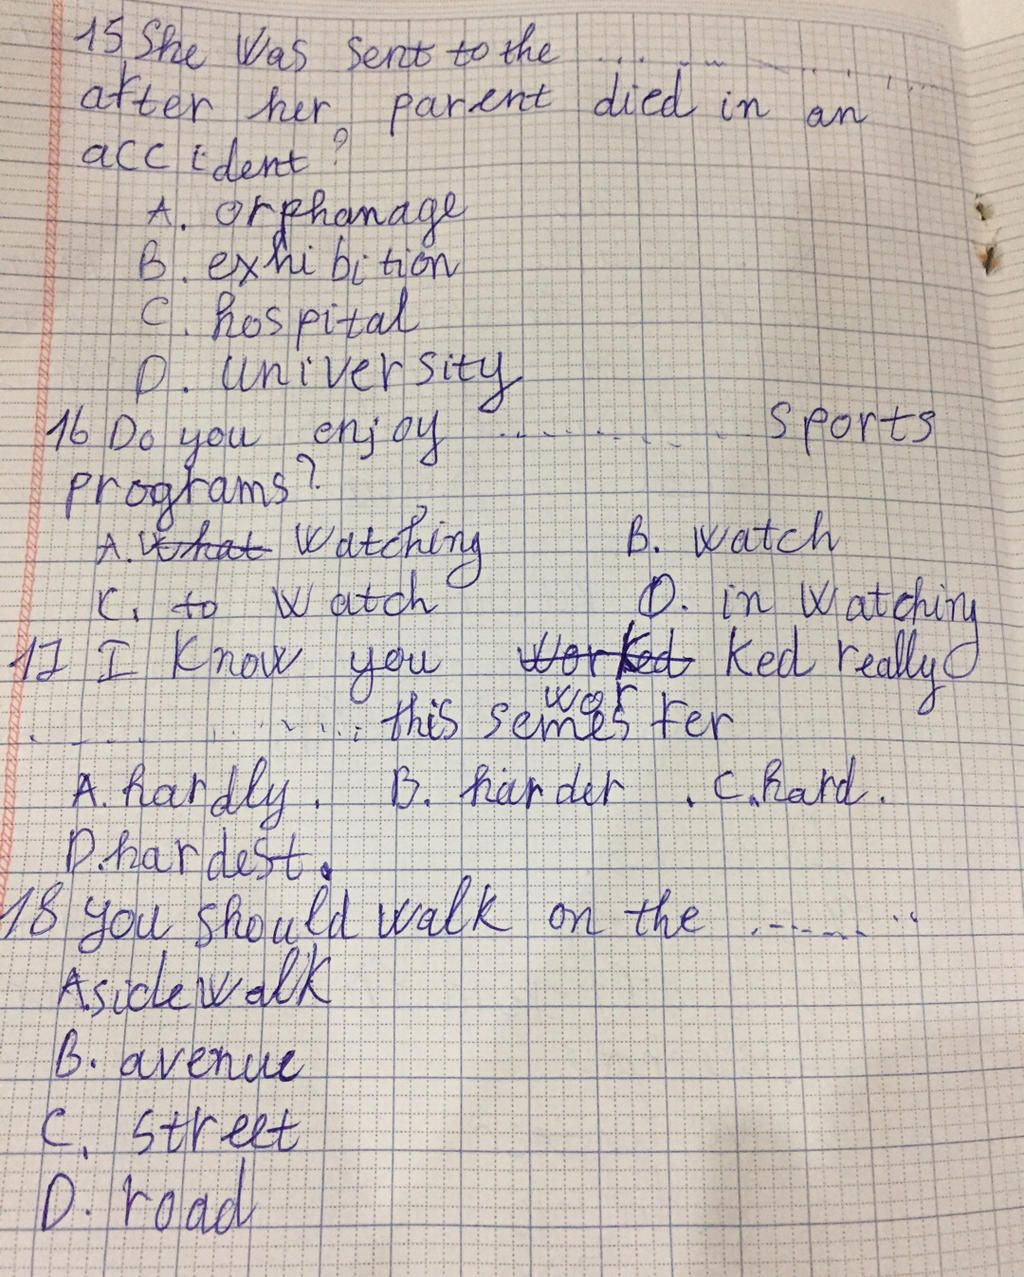 15 She was sent to the ..........
after her parent died in an
accident?
A. orphanage
B. exhibition
C. hospital
D. university
16 Do you enjoy .......... sports
programs?
A. What Watching B. watch
C. to watch D. in watching
17 I know you worked ked really
wor
.......... this semester
A. hardly. B. harder . C. hard.
D. hardest.
18 you should walk on the ..........
A. sidewalk
B. avenue
C. street
D. road